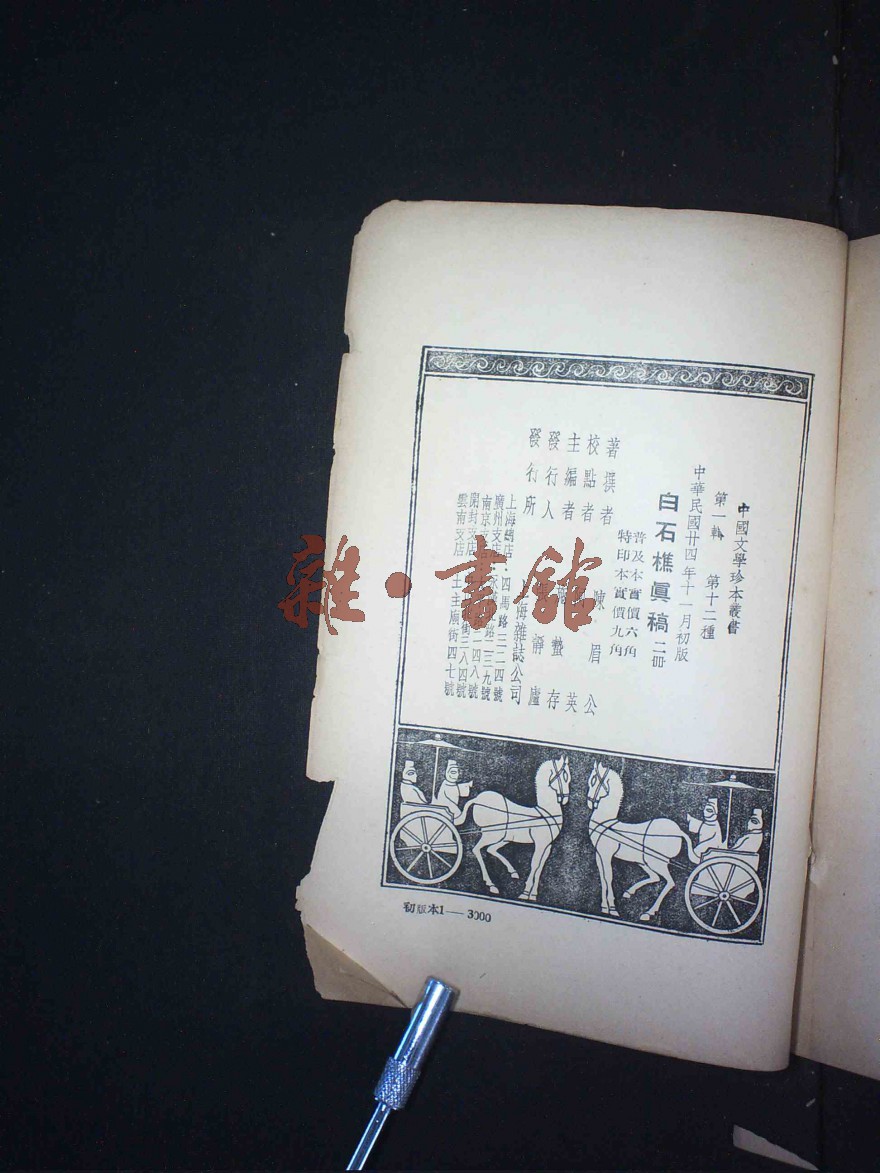 中國文學珍本叢書
第一輯 第十二種
中華民國廿四年十一月初版
白石樵眞稿 二冊
普及本實價六角
特印本實價九角
著撰者 陳眉公
校點者 英
主編者 蟄存
發行人 靜廬
發行所 海雜誌公司
上海總店 四馬路三二四號
廣州支店
南京支店 路二三九號
開封支店 二四八號
雲南支店 土主廟街四七號
初版本1—3000
雜·書館